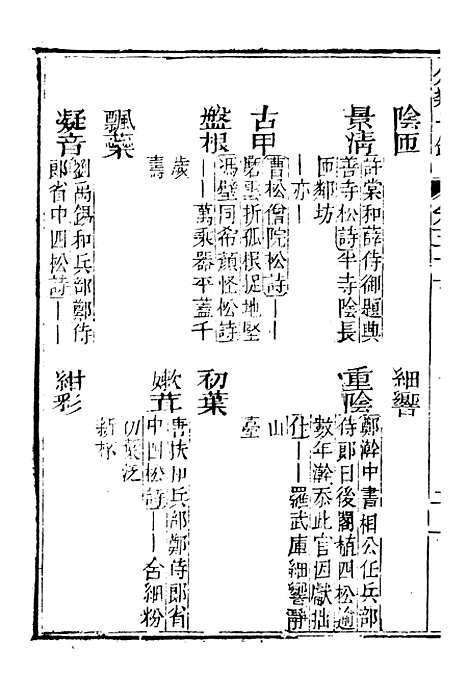 陰匝
細響
景清
許棠和薛侍御題興
善寺松詩半寺陰長
匝鄰坊
——亦
重陰
鄭澣中書相公任兵部
侍郎日後閣植四松逾
數年澣忝此官因獻拙
什——羅武庫細響靜
山
臺
古甲
曹松僧院松詩——
磨雲折孤根捉地堅
盤根
馮璧同希顏怪松詩
——萬乘器平蓋千
歲
壽
初葉
嫩茸
唐扶和兵部鄭侍郎省
中四松詩——含細粉
初葉泛
新杯
飄藥
凝音
劉禹錫和兵部鄭侍
郎省中四松詩——
紺彩